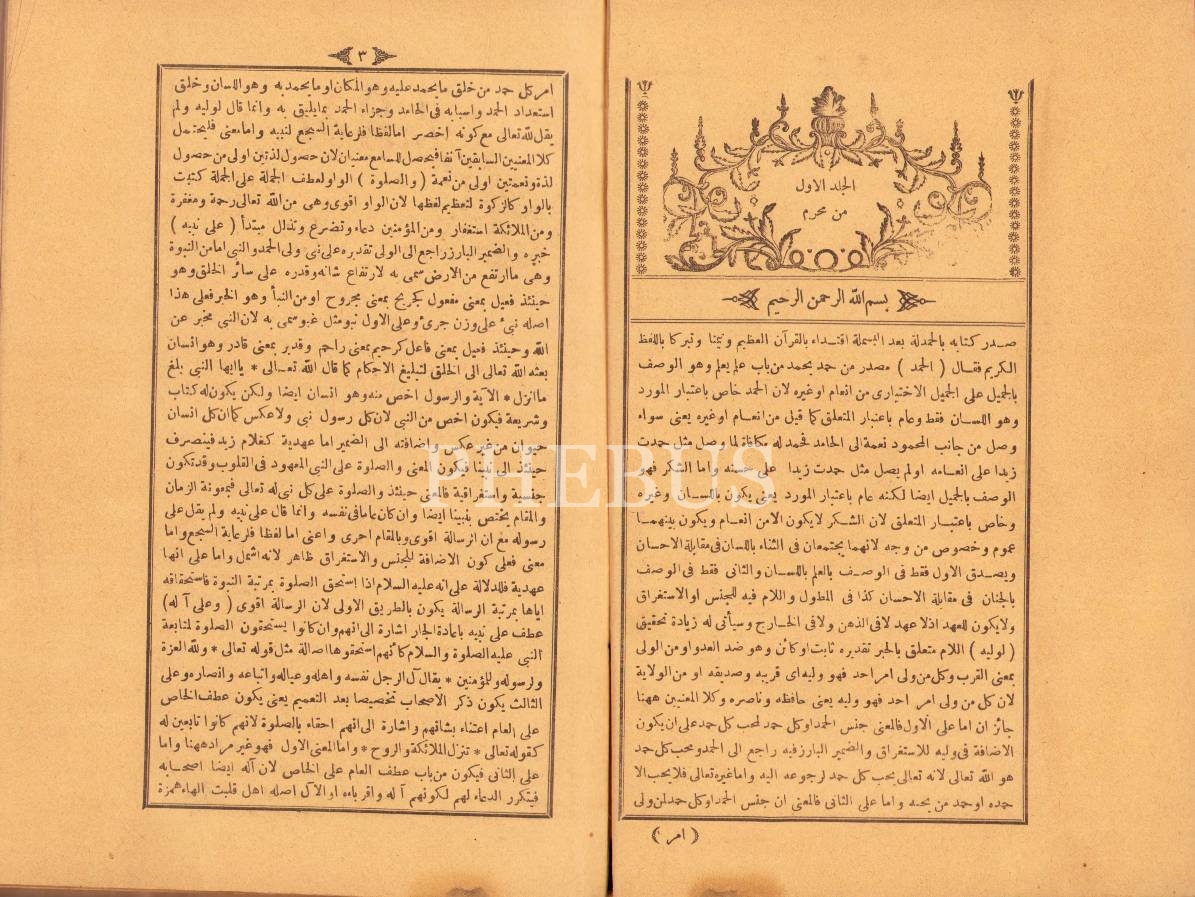 الجلد الاول
من محرم
بسم الله الرحمن الرحيم
صدر كتابه بالحمدلة بعد البسملة اقتداء بالقرآن العظيم وتيمنا وتبركا باللفظ
الكريم فقال ( الحمد ) مصدر من حمد يحمد من باب علم يعلم وهو الوصف
بالجميل على الجميل الاختيارى من انعام اوغيره لان الحمد خاص باعتبار المورد
وهو اللسان فقط وعام باعتبار المتعلق كما قيل من انعام اوغيره يعنى سواء
وصل من جانب المحمود نعمة الى الحامد فحمد له مكافاة لما وصل مثل حمدت
زيدا على انعامه اولم يصل مثل حمدت زيدا على حسنه واما الشكر فهو
الوصف بالجميل ايضا لكنه عام باعتبار المورد يعنى يكون باللسان وغيره
وخاص باعتبار المتعلق لان الشكر لايكون الامن انعام ويكون بينهما
عموم وخصوص من وجه لانهما يجتمعان فى الثناء باللسان فى مقابلة الاحسان
ويصدق الاول فقط فى الوصف بالعلم باللسان والثانى فقط فى الوصف
بالجنان فى مقابلة الاحسان كذا فى المطول واللام فيه للجنس اوالاستغراق
ولايكون للعهد اذلا عهد لافى الذهن ولافى الخارج وسيأتى له زيادة تحقيق
( لوليه ) اللام متعلق بالخبر تقديره ثابت اوكائن وهو ضد العدو او من الولى
بمعنى القرب وكل من ولى امر احد فهو وليه اى قريبه وصديقه او من الولاية
لان كل من ولى امر احد فهو وليه يعنى حافظه وناصره وكلا المعنيين ههنا
جائز ان اما على الاول فالمعنى جنس الحمد اوكل حمد لمحب كل حمد على ان يكون
الاضافة فى وليه للاستغراق والضمير البارز فيه راجع الى الحمد ومحب كل حمد
هو الله تعالى لانه تعالى يحب كل حمد لرجوعه اليه واما غيره تعالى فلا يحب الا
حمده اوحمد من يحبه واما على الثانى فالمعنى ان جنس الحمد اوكل حمد لمن ولى
( امر )
٣
امر كل حمد من خلق ما يحمد عليه وهو المكان او ما يحمد به وهو اللسان وخلق
استعداد الحمد واسبابه فى الحامد وجزاء الحمد بما يليق به وانما قال لوليه ولم
يقل لله تعالى مع كونه اخصر اما لفظا فلرعاية السجع لنبيه واما معنى فليحتمل
كلا المعنيين السابقين آنفا فيحصل للسامع معنيان لان حصول لذتين اولى من حصول
لذة ونعمتين اولى من نعمة ( والصلوة ) الواو لعطف الجملة على الجملة كتبت
بالواو كالزكوة لتعظيم لفظها لان الواو اقوى وهى من الله تعالى رحمة ومغفرة
ومن الملائكة استغفار ومن المؤمنين دعاء وتضرع وتذلل مبتدأ ( على نبيه )
خبره والضمير البارز راجع الى الولى تقديره على نبى ولى الحمد والنبى اما من النبوة
وهى ما ارتفع من الارض سمى به لارتفاع شانه وقدره على سائر الخلق وهو
حينئذ فعيل بمعنى مفعول كجريح بمعنى مجروح او من النبأ وهو الخبر فعلى هذا
اصله نبئ على وزن جرئ وعلى الاول نبيو مثل غبو سمى به لان النبى مخبر عن
الله وحينئذ فعيل بمعنى فاعل كرحيم بمعنى راحم وقدير بمعنى قادر وهو انسان
بعثه الله تعالى الى الخلق لتبليغ الاحكام كما قال الله تعالى * ياايها النبى بلغ
ما انزل * الآية والرسول اخص منه وهو انسان ايضا ولكن يكون له كتاب
وشريعة فيكون اخص من النبى لان كل رسول نبى ولا عكس كما ان كل انسان
حيوان من غير عكس واضافته الى الضمير اما عهدية كغلام زيد فينصرف
حينئذ الى نبينا فيكون المعنى والصلوة على النبى المعهود فى القلوب وقد تكون
جنسية واستغراقية فالمعنى حينئذ والصلوة على كل نبى له تعالى فبمعونة الزمان
والمقام يختص بنبينا ايضا وان كان عاما فى نفسه وانما قال على نبيه ولم يقل على
رسوله مع ان الرسالة اقوى وبالمقام احرى واعنى اما لفظا فلرعاية السجع واما
معنى فعلى كون الاضافة للجنس والاستغراق ظاهر لانه اشمل واما على انها
عهدية فللدلالة على انه عليه السلام اذا استحق الصلوة بمرتبة النبوة فاستحقاقه
اياها بمرتبة الرسالة يكون بالطريق الاولى لان الرسالة اقوى ( وعلى آ له )
عطف على نبيه باعادة الجار اشارة الى انهم وان كانوا يستحقون الصلوة لمتابعة
النبى عليه الصلوة والسلام كأنهم استحقوها اصالة مثل قوله تعالى * ولله العزة
ولرسوله وللمؤمنين * يقال آل الرجل نفسه واهله وعياله واتباعه وانصاره وعلى
الثالث يكون ذكر الاصحاب تخصيصا بعد التعميم يعنى يكون عطف الخاص
على العام اعتناء بشاقهم واشارة الى انهم احقاء بالصلوة لانهم كانوا تابعين له
كقوله تعالى * تنزل الملائكة والروح * واما المعنى الاول فهو غير مراد ههنا واما
على الثانى فيكون من باب عطف العام على الخاص لان آله ايضا اصحابه
فيتكرر الدعاء لهم لكونهم آ له واقرباءه او الآل اصله اهل قلبت الهاء همزة
PHEBUS